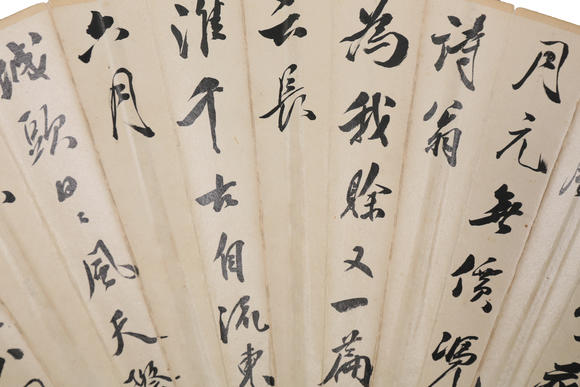 月元無價馮
詩翁
為我賒又一篇
長
淮千古自流東
六月
城頭日日風天